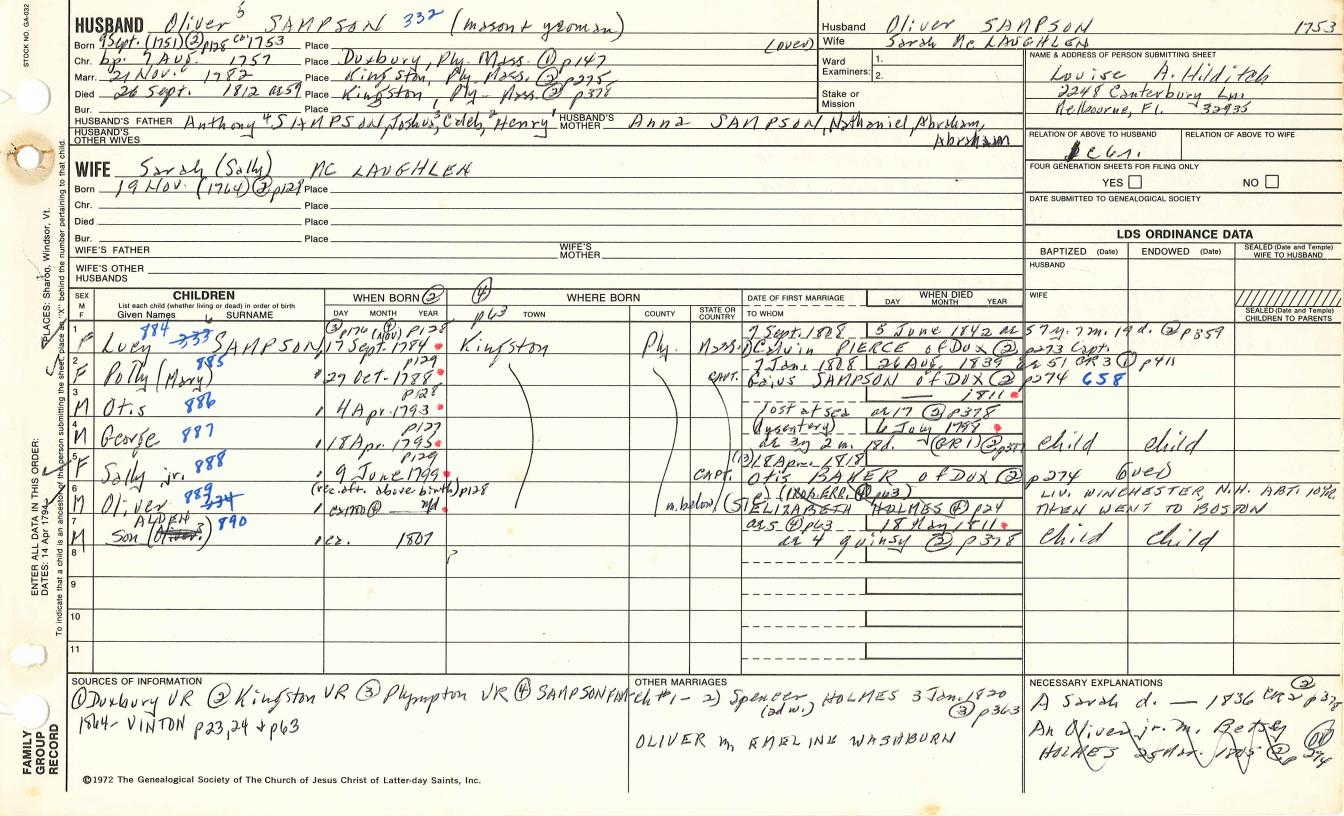 STOCK NO. GA-032
HUSBAND Oliver 5 SAMPSON 332 (mason & yeoman)
Born 9 Sept. (1751) ② p128 ca 1753 Place (over)
Chr. bp. 7 Aug. 1757 Place Duxbury, Ply. Mass. ① p147
Marr. 21 Nov. 1782 Place Kingston, Ply. Mass. ② p275
Died 26 Sept. 1812 ae 59 Place Kingston, Ply. Mass. ② p378
Bur. Place
HUSBAND'S FATHER Anthony 4 SAMPSON, Joshua 3, Caleb 2, Henry 1 HUSBAND'S MOTHER Anna SAMPSON, Nathaniel, Abraham, Abraham
HUSBAND'S OTHER WIVES
WIFE Sarah (Sally) Mc LAUGHLEN
Born 19 Nov. (1764) ② p128 Place
Chr. Place
Died Place
Bur. Place
WIFE'S FATHER WIFE'S MOTHER
WIFE'S OTHER HUSBANDS
Husband Oliver SAMPSON 1753
Wife Sarah Mc LAUGHLEN
Ward Examiners: 1. 2.
Stake or Mission
NAME & ADDRESS OF PERSON SUBMITTING SHEET
Louise A. Hilditch
2248 Canterbury Ln.
Melbourne, Fl. 32935
RELATION OF ABOVE TO HUSBAND RELATION OF ABOVE TO WIFE
FOUR GENERATION SHEETS FOR FILING ONLY
YES NO
DATE SUBMITTED TO GENEALOGICAL SOCIETY
LDS ORDINANCE DATA
BAPTIZED (Date) ENDOWED (Date) SEALED (Date and Temple) WIFE TO HUSBAND
HUSBAND
WIFE
SEALED (Date and Temple) CHILDREN TO PARENTS
SEX M F CHILDREN List each child (whether living or dead) in order of birth Given Names SURNAME
WHEN BORN ② DAY MONTH YEAR
④ p63 WHERE BORN TOWN COUNTY STATE OR COUNTRY
DATE OF FIRST MARRIAGE TO WHOM
WHEN DIED DAY MONTH YEAR
1 F Lucy 884 333 SAMPSON ③ p176 ④ (Nov) p128 17 Sept. 1784 Kingston Ply. Mass. 7 Sept. 1808 5 June 1842 ae 57 y. 7 m. 19 d. ② p359
1) Calvin PIERCE of DUX ② p273 Capt.
2 F Polly (Mary) 885 p129 27 Oct. 1788 CAPT. 7 Jan. 1808 26 Aug. 1839 ae 51 GR 3 ① p411
Gaius SAMPSON of DUX ② p274 658
3 M Otis 886 p128 4 Apr. 1793 — 1811
lost at sea ae 17 ② p378
4 M George 887 p127 18 Apr. 1795 (dysentery) 6 July 1798
ae 3 y 2 m. 18 d. (GR 1) ② child child
5 F Sally jr. 888 p129 9 June 1799 CAPT. 18 Apr. 1818
Otis BAKER of DUX ② p274 (over)
6 M Oliver 889 334 (rec. aft. above birth) p128 ca 1800 ④ — nd m. below ④ p63)
ELIZABETH HOLMES ④ p24
LIV. WINCHESTER, N.H. ABT.
THEN WENT TO BOSTON
7 M ALDEN Son (Oliver) 890 ca. 1807 ae 5 ④ p63 18 May 1811
ae 4 quinsy ② p378 child child
8
9
10
11
SOURCES OF INFORMATION
① Duxbury VR ② Kingston VR ③ Plympton VR ④ SAMPSON FAM
1864 - VINTON p23, 24 & p63
OTHER MARRIAGES
ch #1 - 2) Spencer HOLMES 3 Jan. 1820
(ad w.) ② p363
OLIVER m. EMELINE WASHBURN
NECESSARY EXPLANATIONS
A Sarah d. — 1836 GR 2 ② p378
An Oliver jr. m. Betsey
HOLMES 25 Mar. 1805 ② p 274
©1972 The Genealogical Society of The Church of Jesus Christ of Latter-day Saints, Inc.
FAMILY GROUP RECORD
ENTER ALL DATA IN THIS ORDER:
DATES: 14 Apr 1794
PLACES: Sharon, Windsor, Vt.
To indicate that a child is an ancestor of the person submitting the sheet, place an "X" behind the number pertaining to that child.